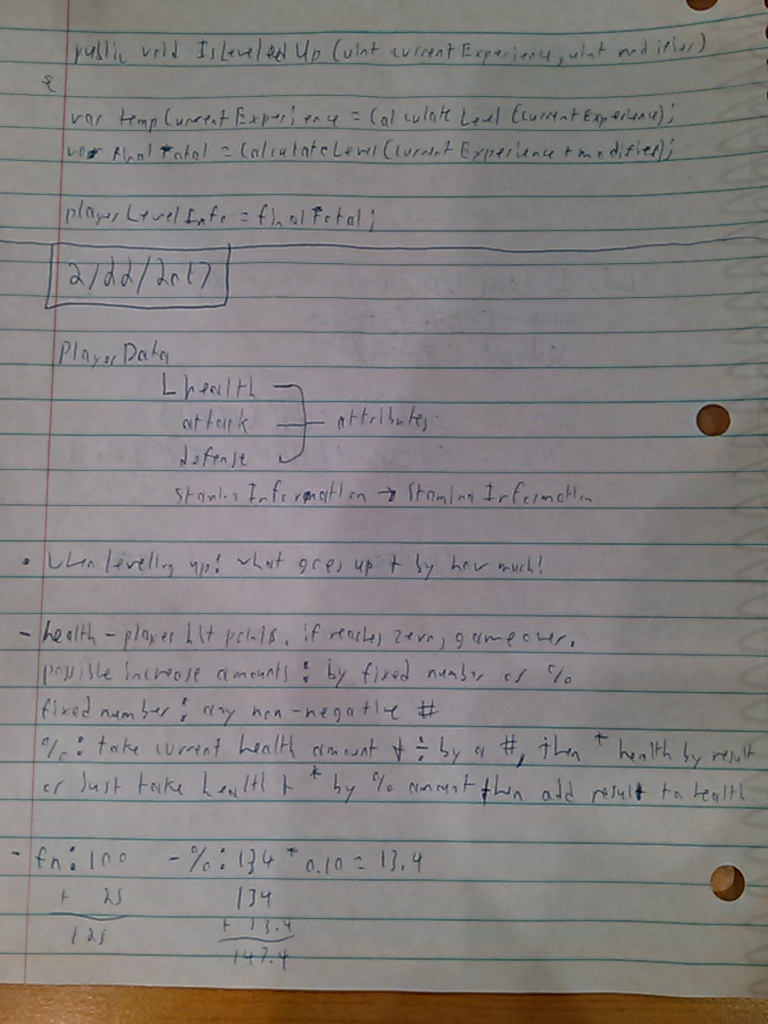 public void IsLeveledUp (uint currentExperience, uint modifier)
{
var tempCurrentExperience = CalculateLevel (currentExperience);
var finalTotal = CalculateLevel (currentExperience + modifier);
playerLevelInfo = finalTotal;
2/22/2017
PlayerData
health
attack attributes
defense
StaminaInformation → StaminaInformation
• When leveling up: what goes up + by how much!
- health - player hit points. if reaches zero, game over.
possible increase amounts: by fixed number or %
fixed number: any non-negative #
%: take current health amount + ÷ by a #, then * health by result
or just take health + * by % amount then add result to health
- fn: 100 - %: 134 * 0.10 = 13.4
+ 25 134
125 + 13.4
147.4